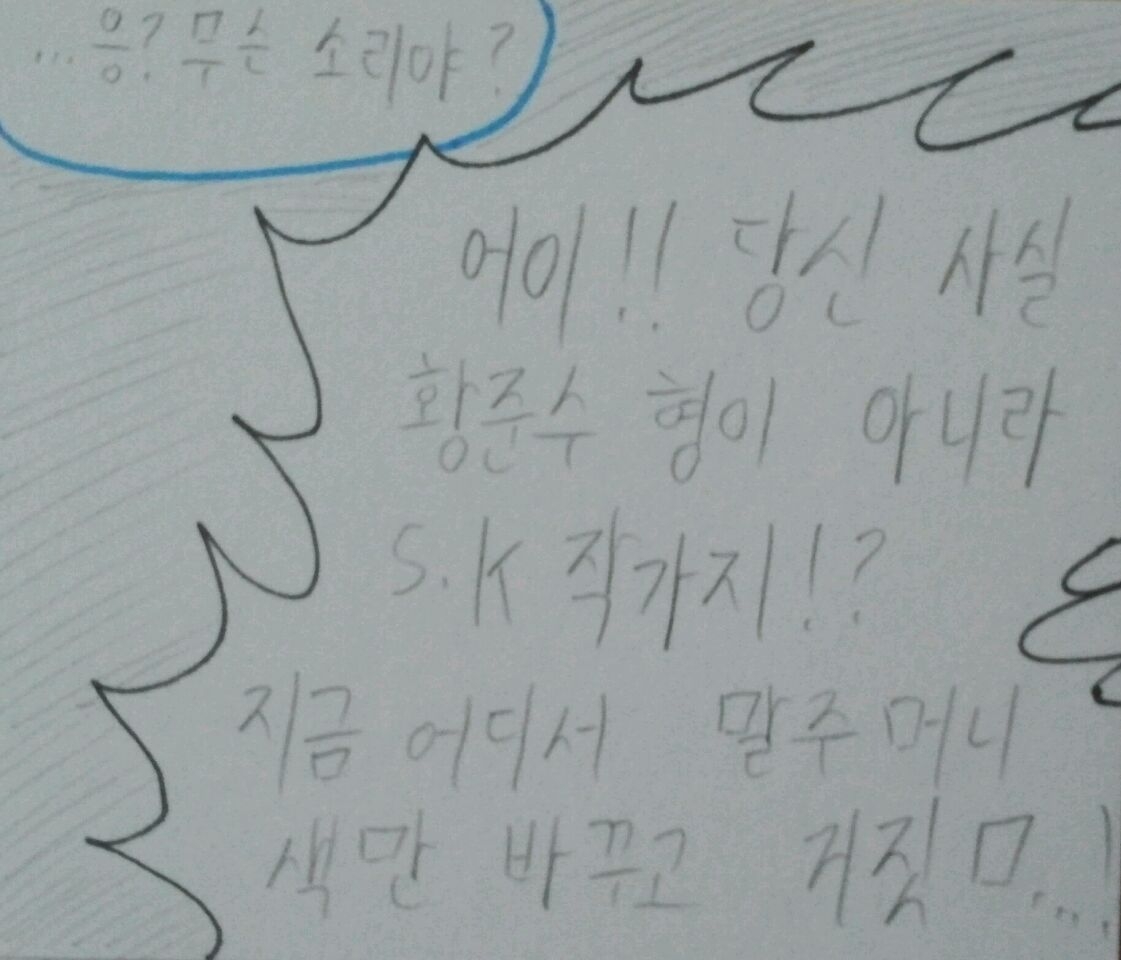 ...응? 무슨 소리야?
어이!! 당신 사실
황준수 형이 아니라
S.K 작가지!?
지금 어디서 말주머니
색만 바꾸고 거짓ㅁ...!